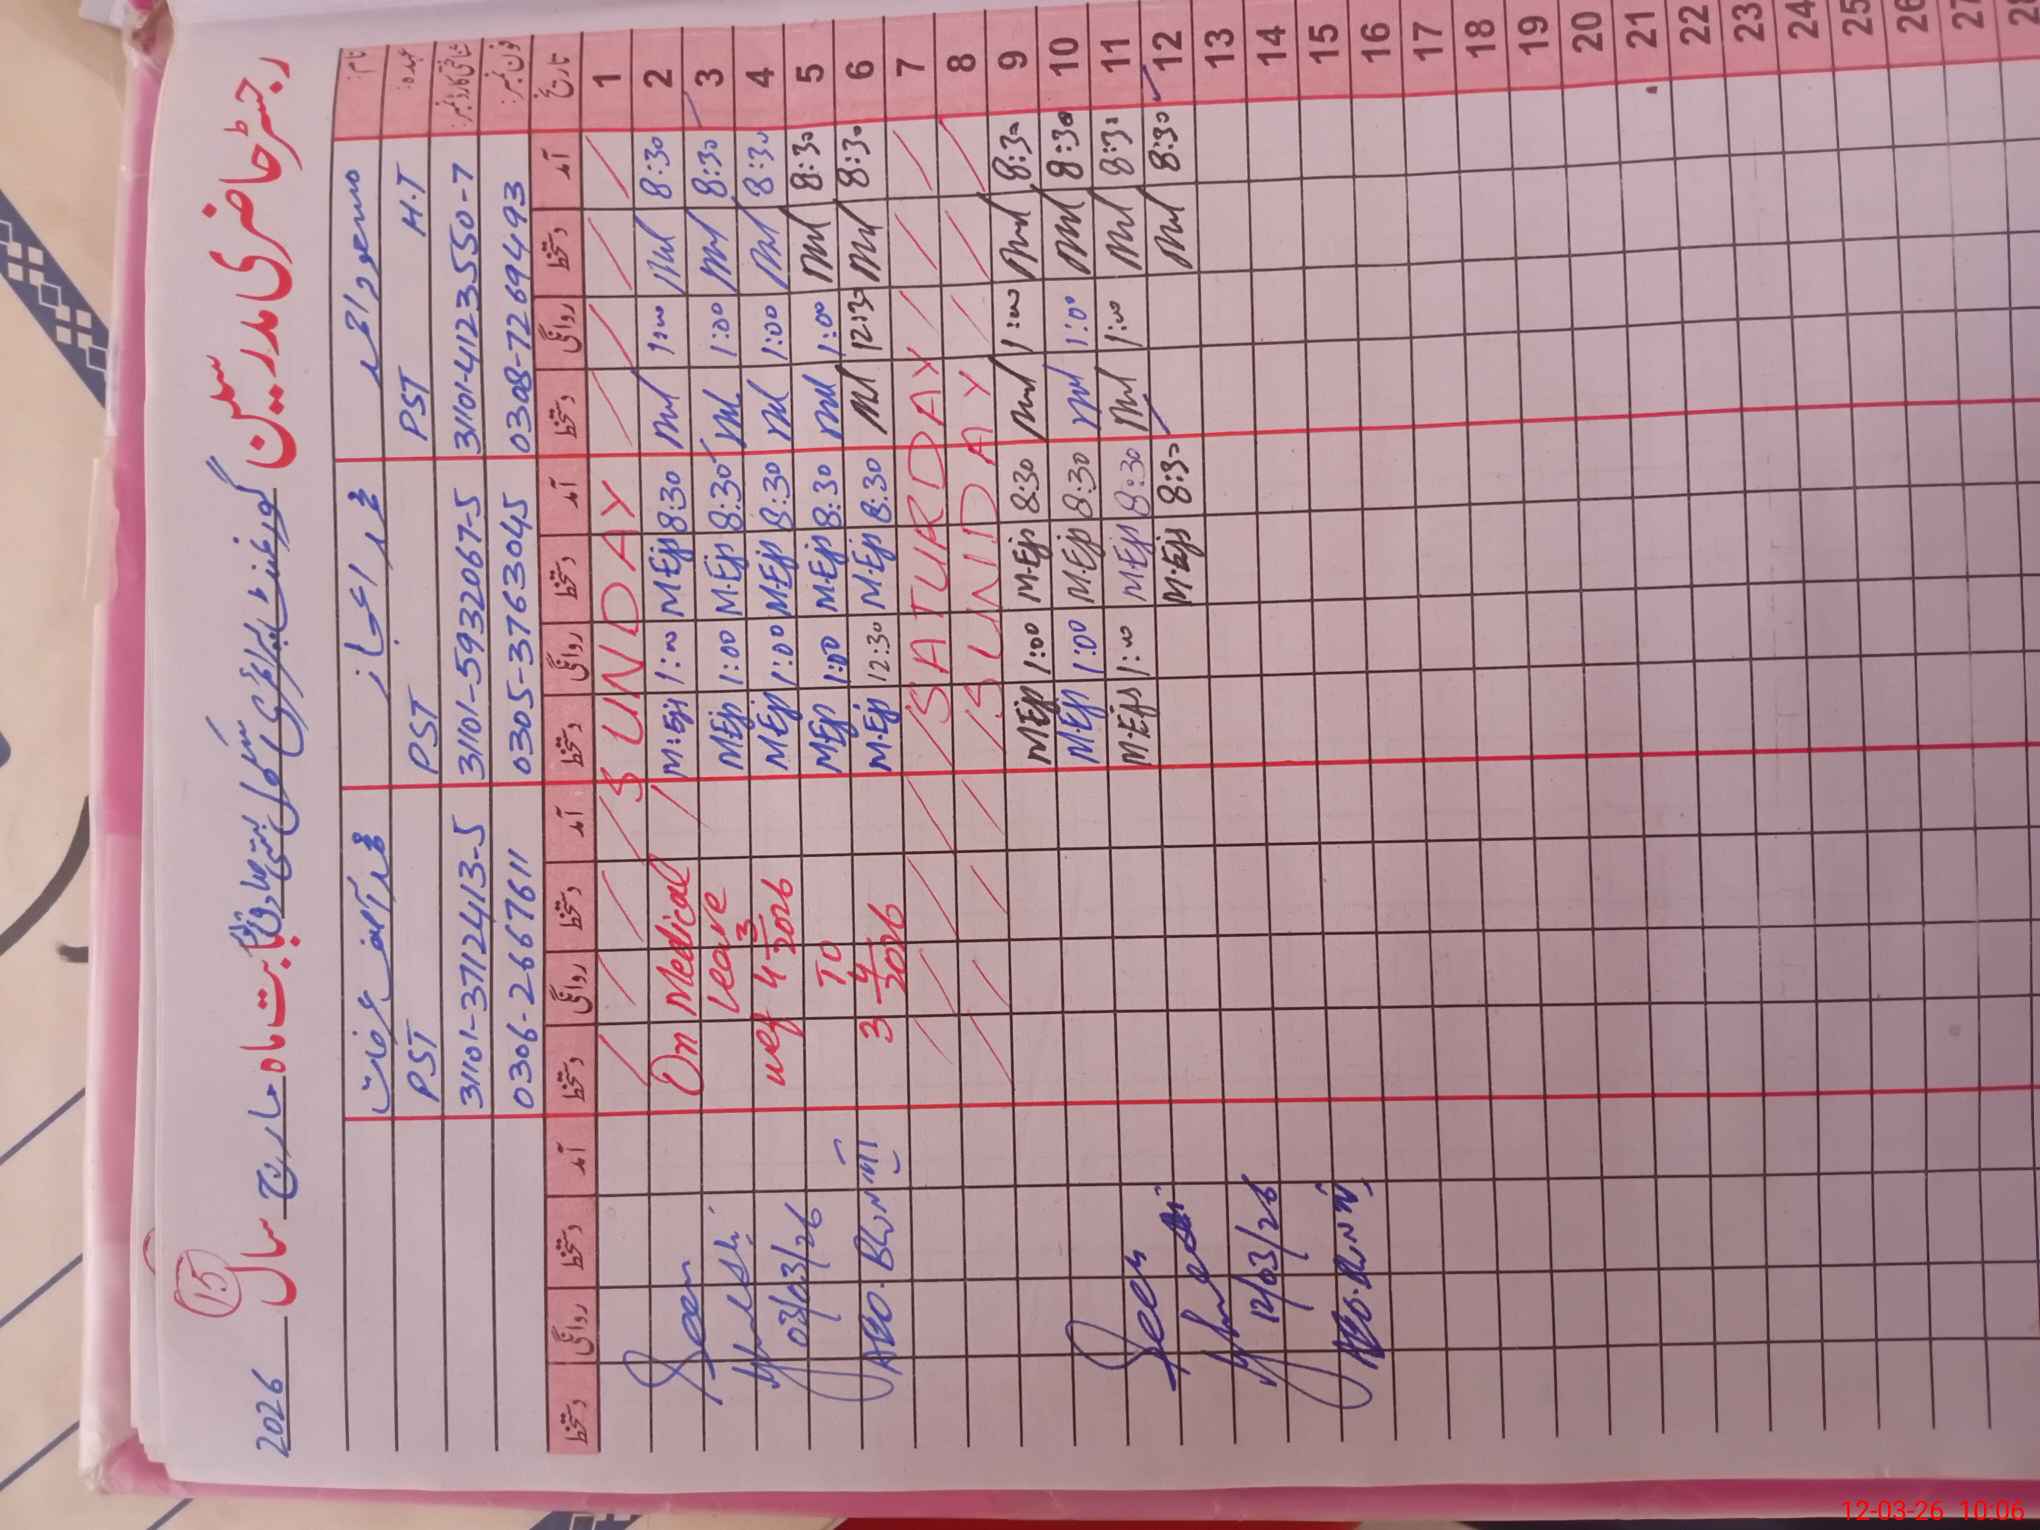 رجسٹر حاضری مدرسین سکول گورنمنٹ بابت ماہ مارچ سال 2026
15
نام:
عہدہ:
شناختی کارڈ نمبر:
فون نمبر:
مسعود اختر
PST H.T
31101-4123550-7
0308-7269493
محمد اعجاز
PST
31101-5932067-5
0305-3763045
محمد آصف
PST
31101-3712413-5
0306-2667611
تاریخ آمد دستخط روانگی دستخط آمد دستخط روانگی دستخط آمد دستخط روانگی دستخط آمد دستخط روانگی دستخط
1 SUNDAY
2 8:30 1:00 8:30 M.Ejs 1:00 M.Ejs On Medical
3 8:30 1:00 8:30 M.Ejs 1:00 M.Ejs Leave
4 8:30 1:00 8:30 M.Ejs 1:00 M.Ejs wef 4 3 2026
5 8:30 1:00 8:30 M.Ejs 1:00 M.Ejs TO
6 8:30 12:30 8:30 M.Ejs 12:30 M.Ejs 3 4 2026
7 SATURDAY
8 SUNDAY
9 8:30 1:00 8:30 M.Ejs 1:00 M.Ejs
10 8:30 1:00 8:30 M.Ejs 1:00 M.Ejs
11 8:30 1:00 8:30 M.Ejs 1:00 M.Ejs
12 8:30 8:30 M.Ejs
13
14
15
16
17
18
19
20
21
22
23
24
25
26
27
28
Seen
03/03/26
AEO.
Seen
12/03/26
AEO.
12-03-26 10:06